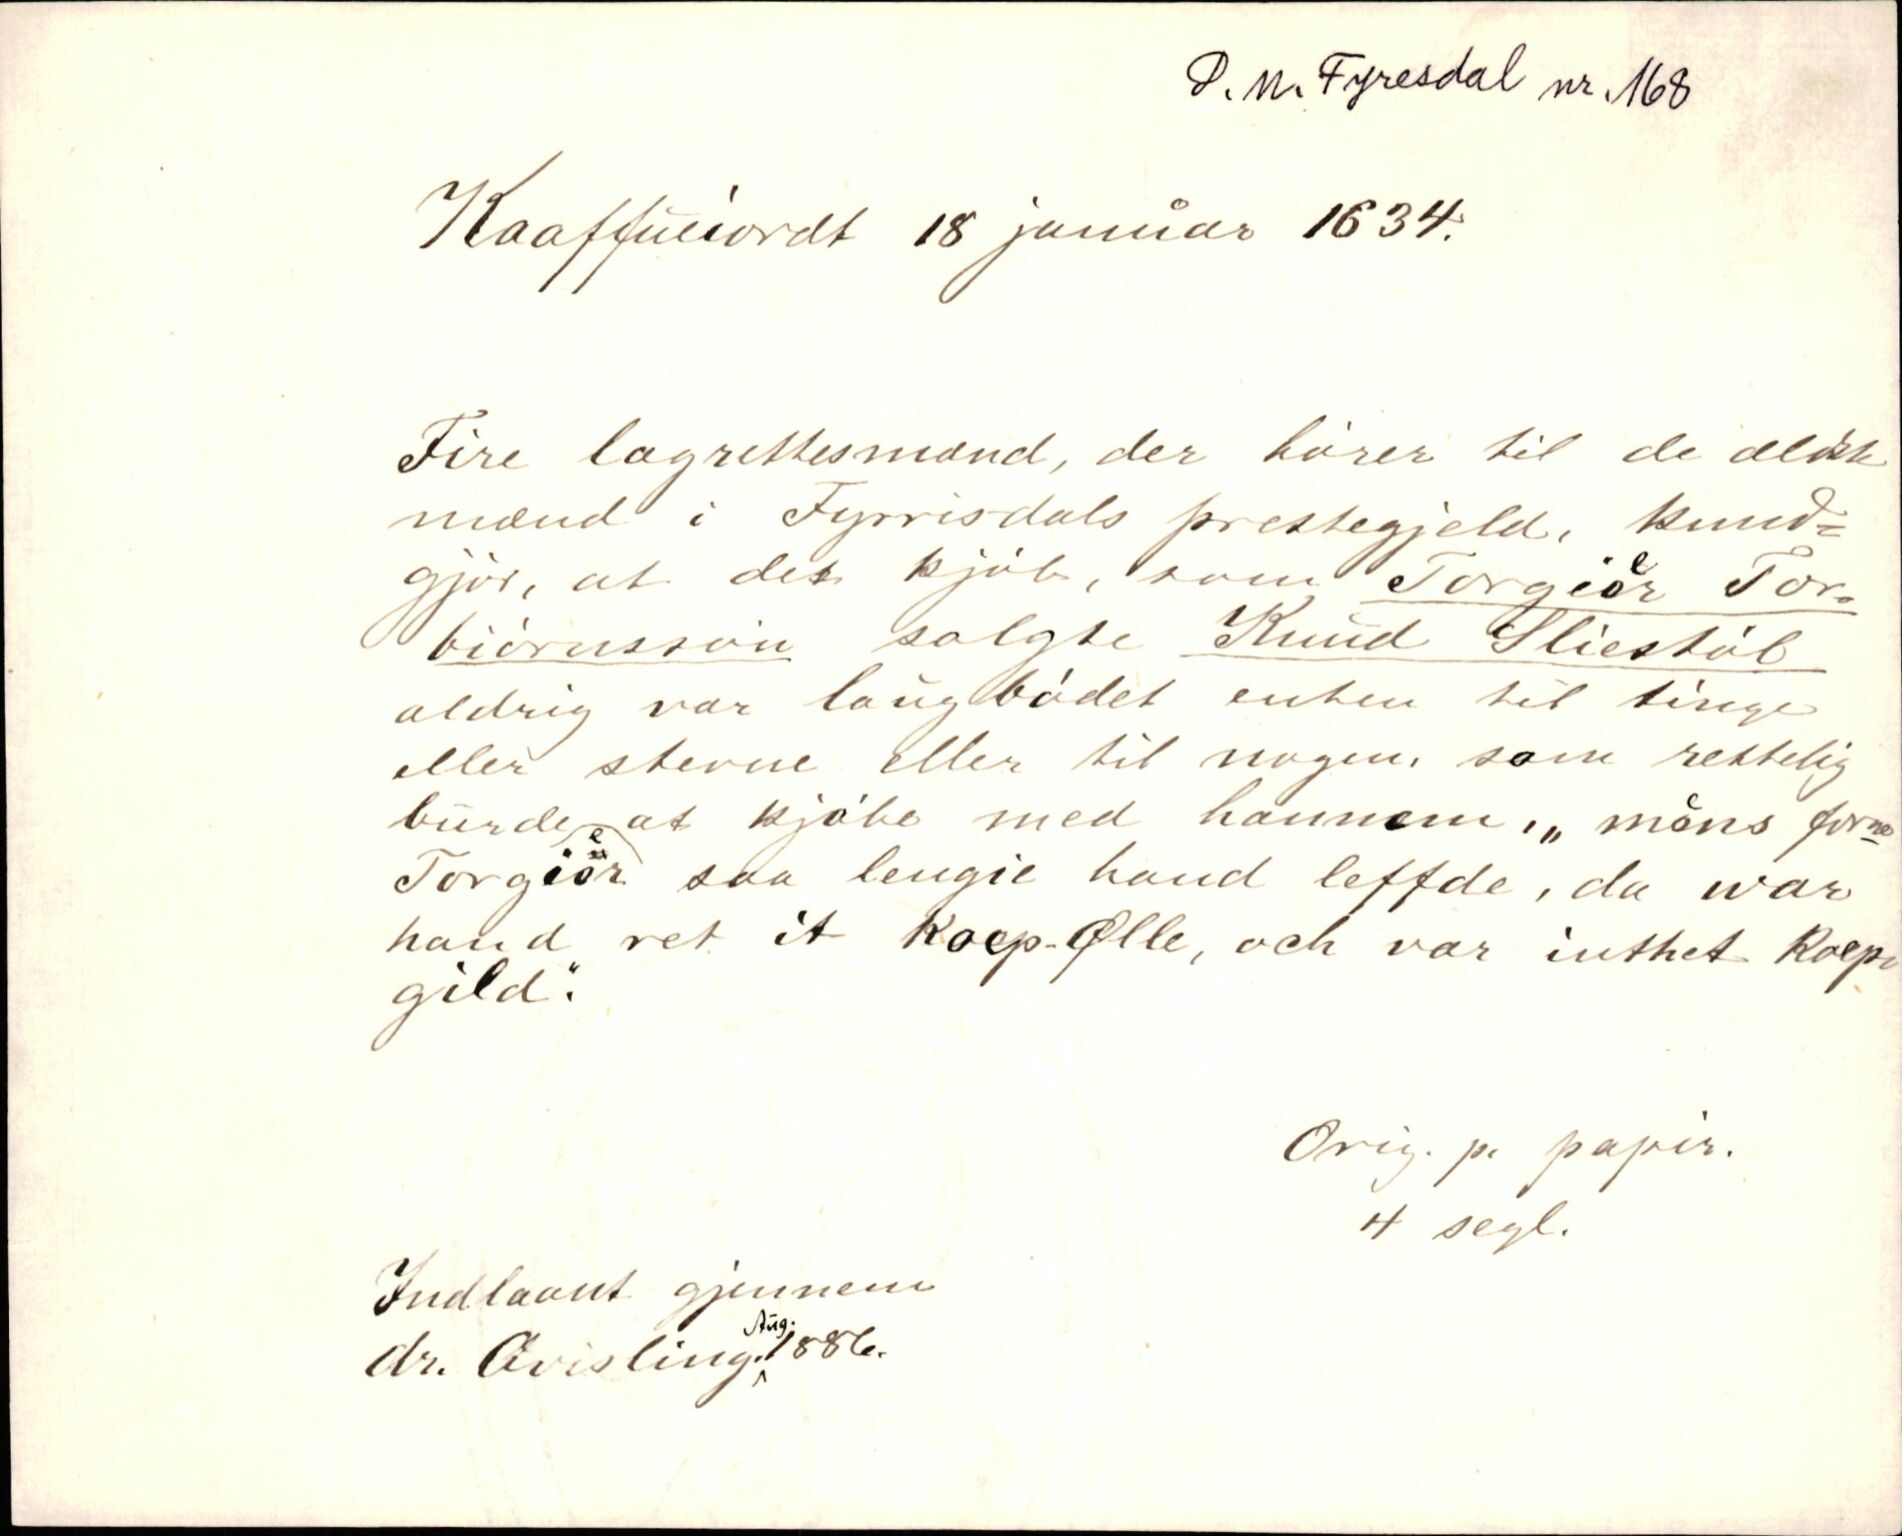 D. N. Fyresdal nr. 168
Kaaffueiordt 18 januar 1634.
Fire lagrettesmænd, der hörer til de ældste
mænd i Fyrrisdals prestegjeld, kund=
gjör, at det kjöb, som Torgiör Tor-
biörnssön solgte Knud Sliestöl
aldrig var laugbödet enten til tinge
eller stevne eller til nogen, som rettelig
burde at kjöbe med hannem, „mens forne
Torgiör saa lengie hand leffde, da war
hand ret it Koep-Ølle, och var inthet Koep-
gild".
Orig. p. papir.
4 segl.
Indlaant gjennem
dr. Qvisling. Aug. 1886.